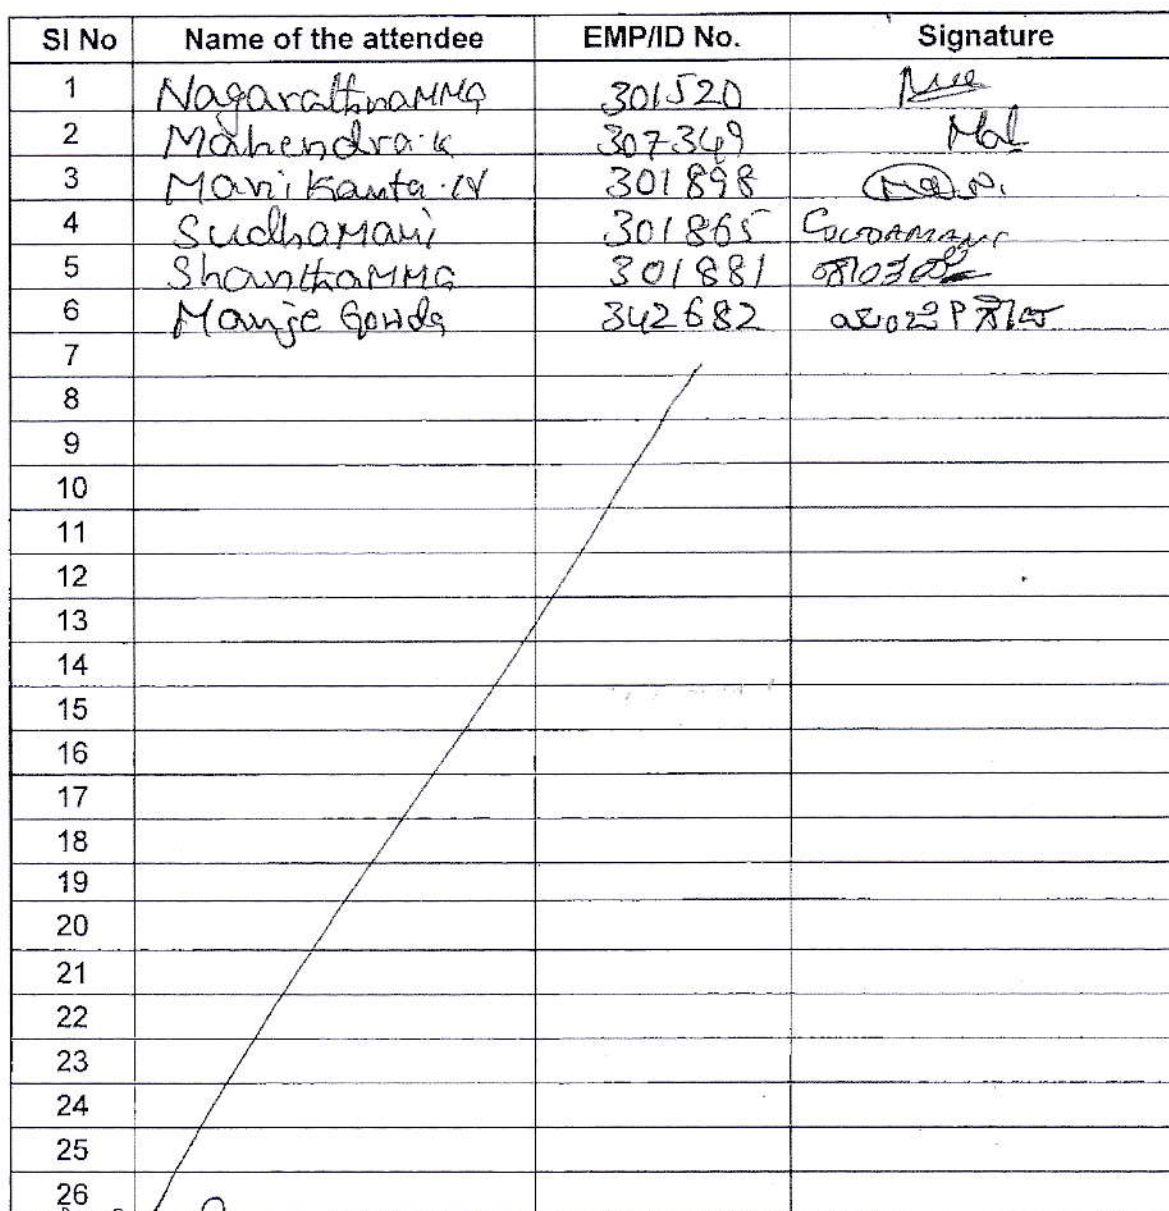 SI No Name of the attendee EMP/ID No. Signature
1 NagarathnaMMa 301520
2 Mahendra.k 307349
3 Manikanta.N 301898
4 Sudhamani 301865
5 ShanthaMMa 301881
6 Manje Gowda 342682
7
8
9
10
11
12
13
14
15
16
17
18
19
20
21
22
23
24
25
26